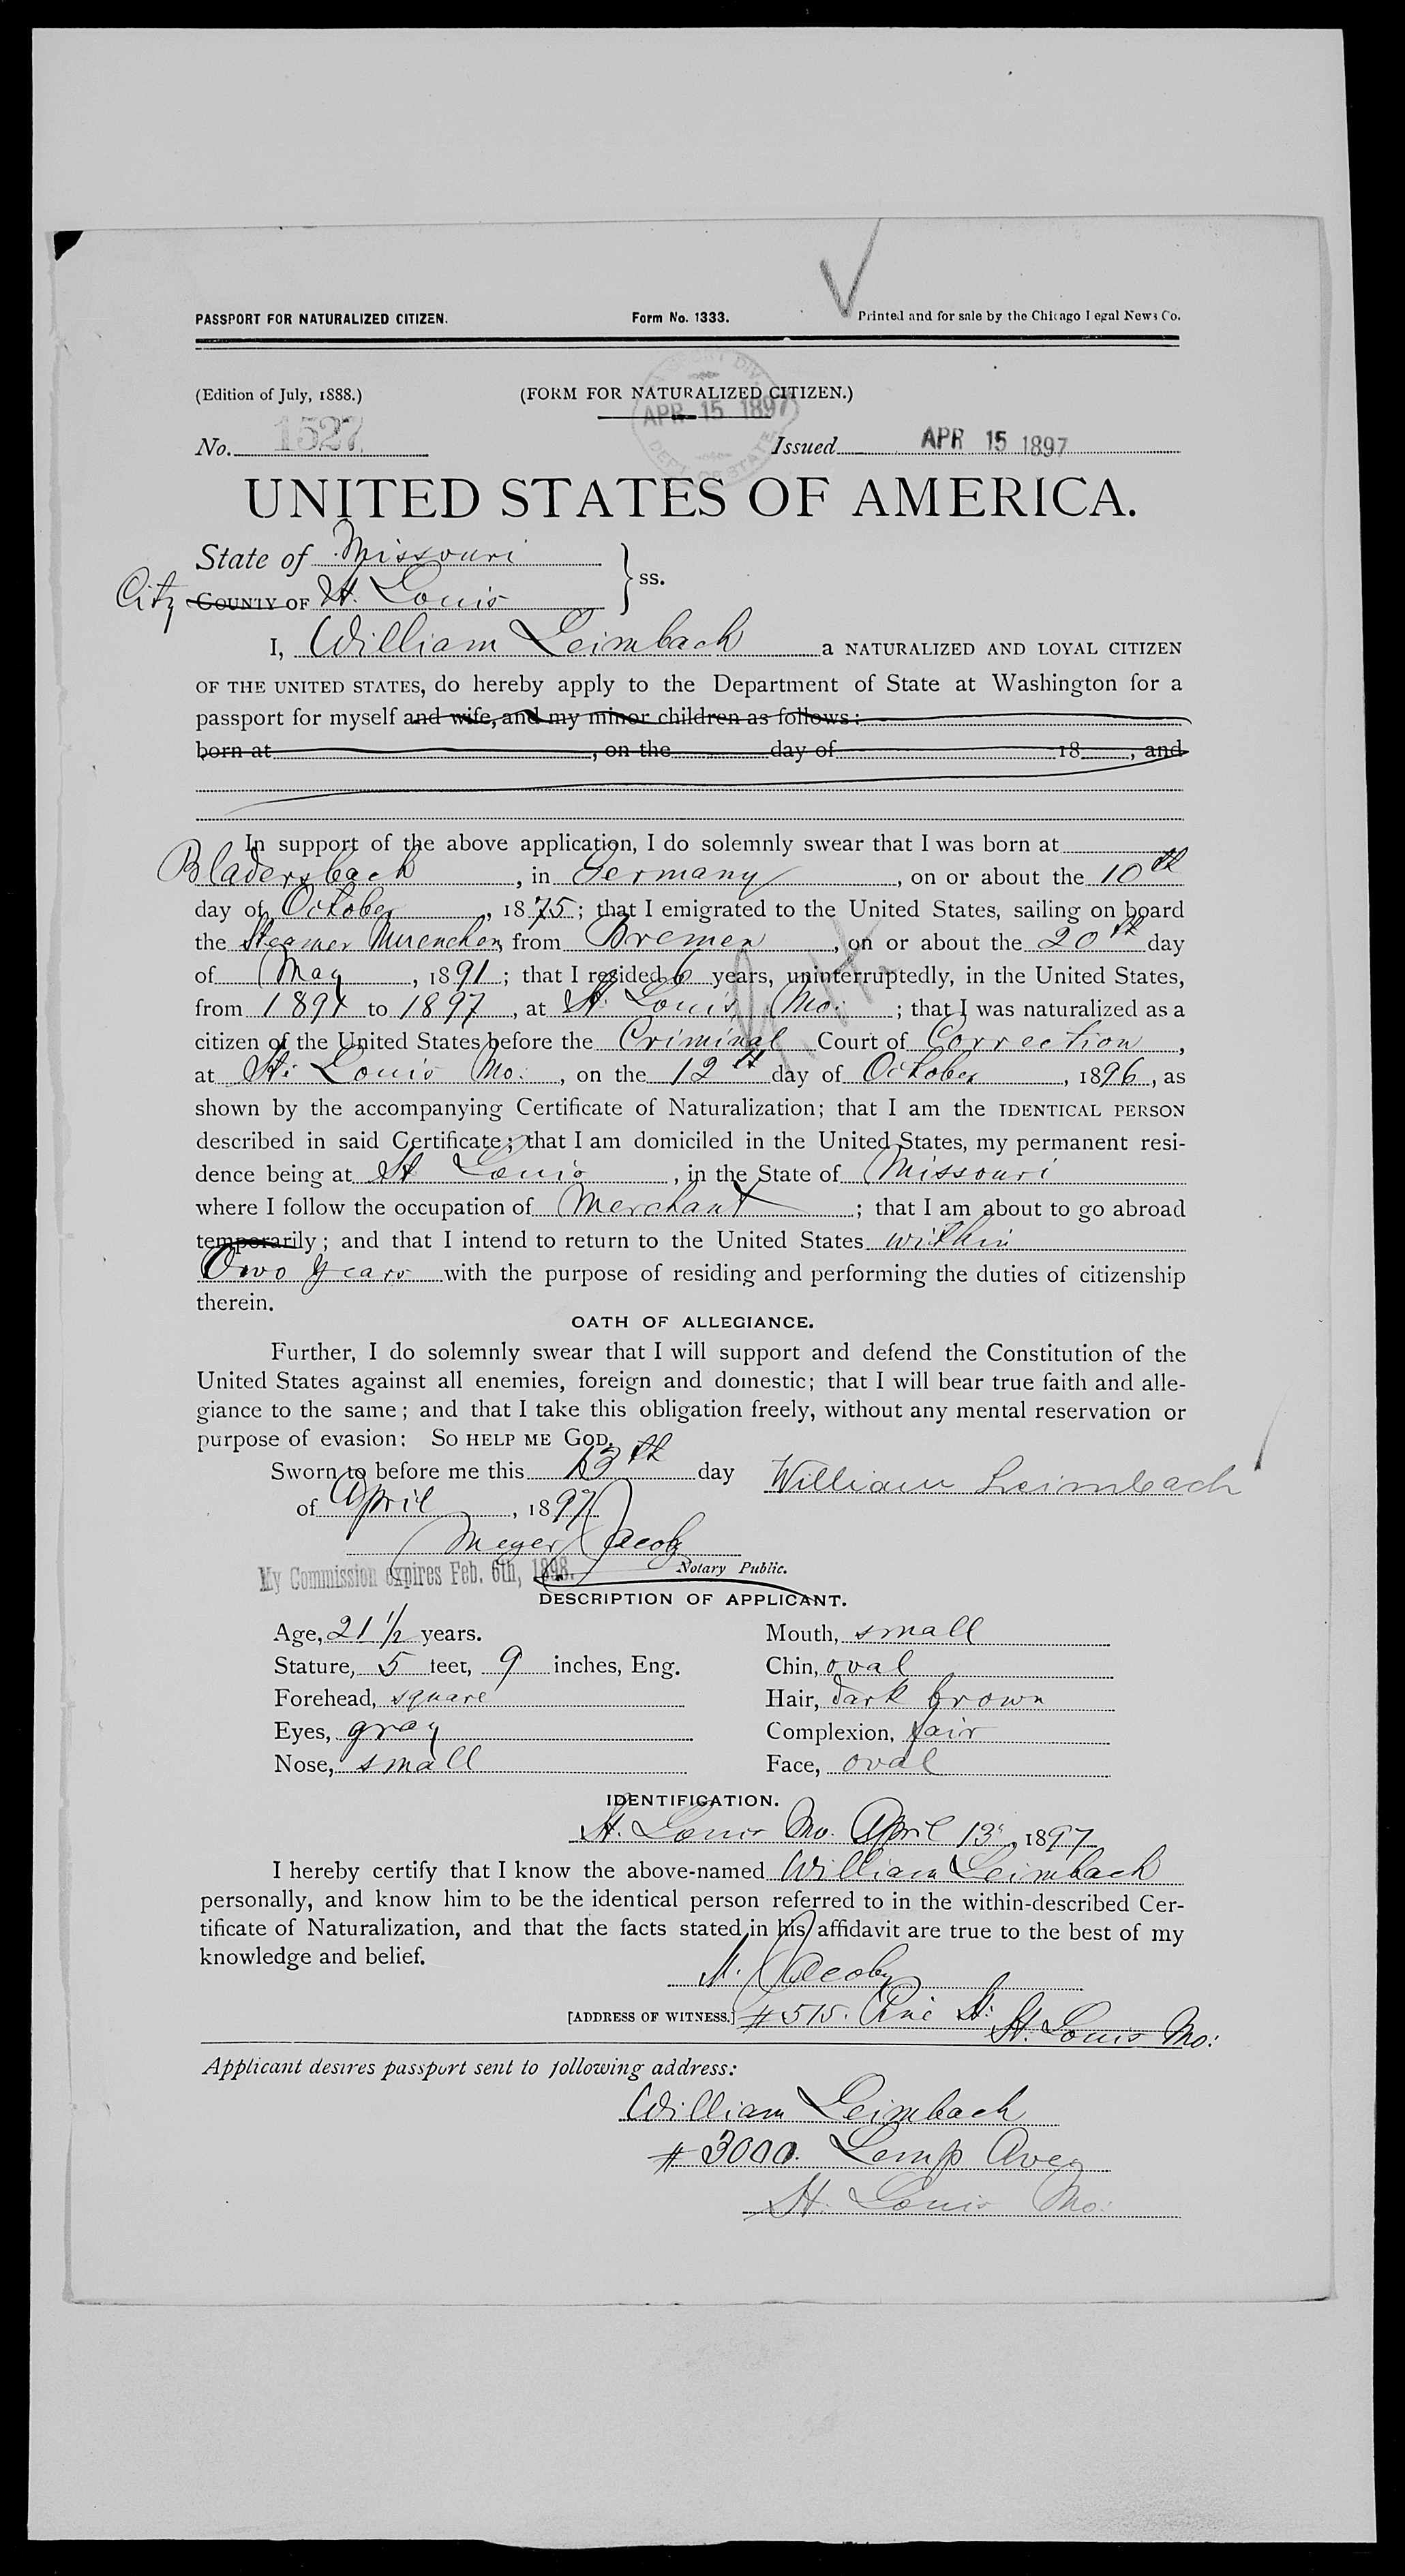 PASSPORT FOR NATURALIZED CITIZEN. Form No. 1333. Printed and for sale by the Chicago Legal News Co.
(Edition of July, 1888.) (FORM FOR NATURALIZED CITIZEN.)
APR 15 1897
DEPT. OF STATE
No. 1527 Issued APR 15 1897
UNITED STATES OF AMERICA.
State of Missouri
City COUNTY OF St. Louis } ss.
I, William Leimbach a NATURALIZED AND LOYAL CITIZEN
OF THE UNITED STATES, do hereby apply to the Department of State at Washington for a
passport for myself and wife, and my minor children as follows:
born at , on the day of 18 , and
In support of the above application, I do solemnly swear that I was born at
Bladersbach, in Germany, on or about the 10th
day of October, 1875; that I emigrated to the United States, sailing on board
the Steamer Muenchen from Bremen, on or about the 20th day
of May, 1891; that I resided 6 years, uninterruptedly, in the United States,
from 1891 to 1897, at St. Louis, Mo.; that I was naturalized as a
citizen of the United States before the Criminal Court of Correction,
at St. Louis Mo., on the 12th day of October, 1896, as
shown by the accompanying Certificate of Naturalization; that I am the IDENTICAL PERSON
described in said Certificate; that I am domiciled in the United States, my permanent resi-
dence being at St Louis, in the State of Missouri
where I follow the occupation of Merchant; that I am about to go abroad
temporarily; and that I intend to return to the United States within
Two years with the purpose of residing and performing the duties of citizenship
therein.
OATH OF ALLEGIANCE.
Further, I do solemnly swear that I will support and defend the Constitution of the
United States against all enemies, foreign and domestic; that I will bear true faith and alle-
giance to the same; and that I take this obligation freely, without any mental reservation or
purpose of evasion: SO HELP ME GOD.
Sworn to before me this 13th day William Leimbach
of April, 1897
Meyer Jacoby
My Commission expires Feb. 6th, 1898. Notary Public.
DESCRIPTION OF APPLICANT.
Age, 21 1/2 years. Mouth, small
Stature, 5 feet, 9 inches, Eng. Chin, oval
Forehead, square Hair, dark brown
Eyes, gray Complexion, fair
Nose, small Face, oval
IDENTIFICATION.
St. Louis Mo. April 13, 1897
I hereby certify that I know the above-named William Leimbach
personally, and know him to be the identical person referred to in the within-described Cer-
tificate of Naturalization, and that the facts stated in his affidavit are true to the best of my
knowledge and belief.
M. Jacoby
[ADDRESS OF WITNESS.] #515. Pine St: St. Louis Mo:
Applicant desires passport sent to following address:
William Leimbach
#3000. Lemp Ave
St. Louis Mo: